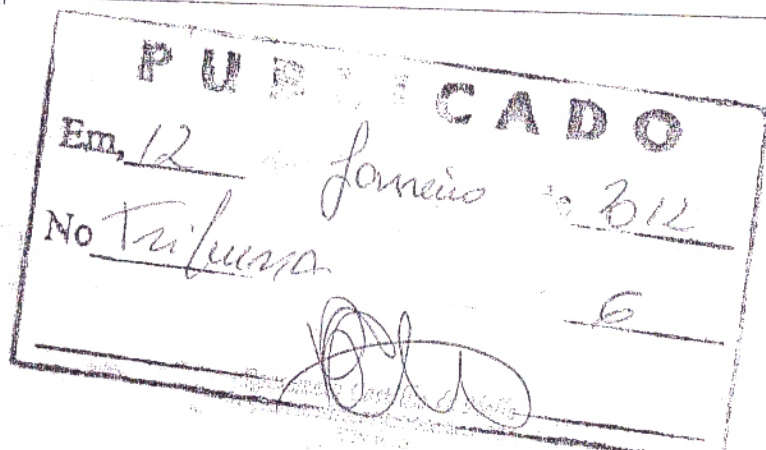 PUBLICADO
Em, 12 Janeiro de 2012
No Tribuna 6